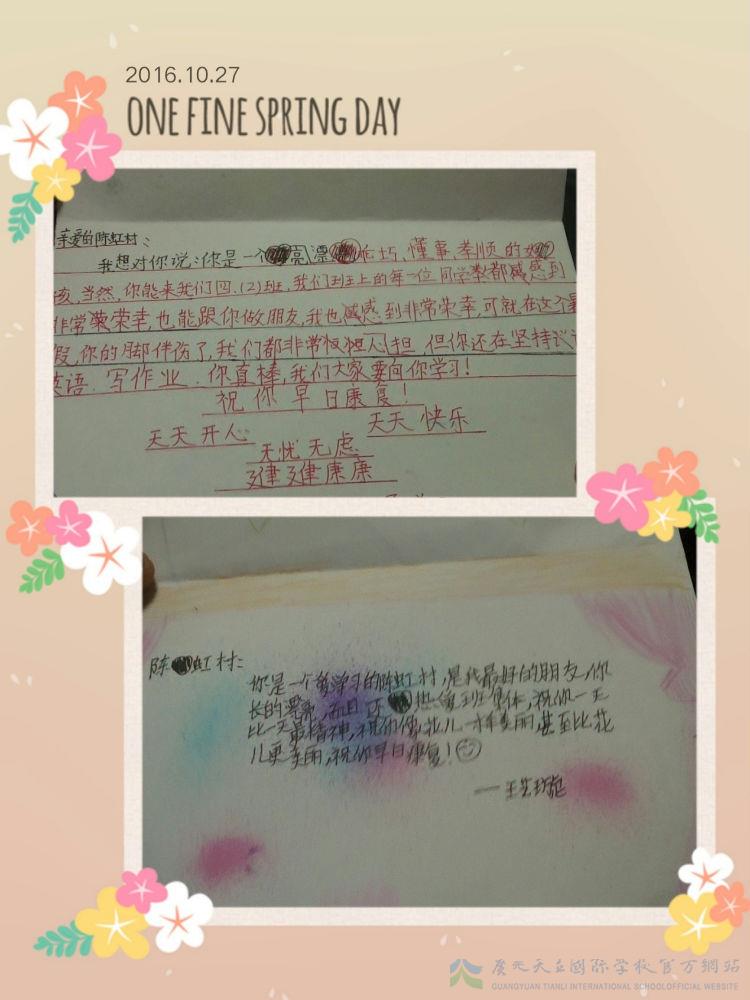 2016.10.27
ONE FINE SPRING DAY
亲爱的陈虹村:
我想对你说:你是一个亮漂乖巧、懂事、孝顺的女
孩,当然,你能来我们四.(2)班,我们班上的每一位同学都感到
非常荣幸,也能跟你做朋友,我也感到非常荣幸,可就在这个暑
假,你的脚伴伤了,我们都非常担,但你还在坚持
英语.写作业.你真棒,我们大家要向你学习!
祝你早日康复!
天天开心 天天快乐
无忧无虑
健健康康
陈虹村:
你是一个爱学习的陈虹村,是我最好的朋友,你
长的漂亮,而且还热爱班集体,祝你一天
比一天最精神,祝你像花儿一样美丽,甚至比花
儿更美丽,祝你早日康复!
广元天立国际学校官方網站
GUANGYUAN TIANLI INTERNATIONAL SCHOOLOFFICIAL WEBSITE